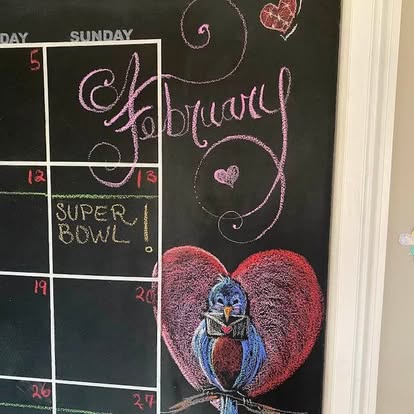 DAY SUNDAY
February
5
12 13
SUPER
BOWL!
19 20
26 27